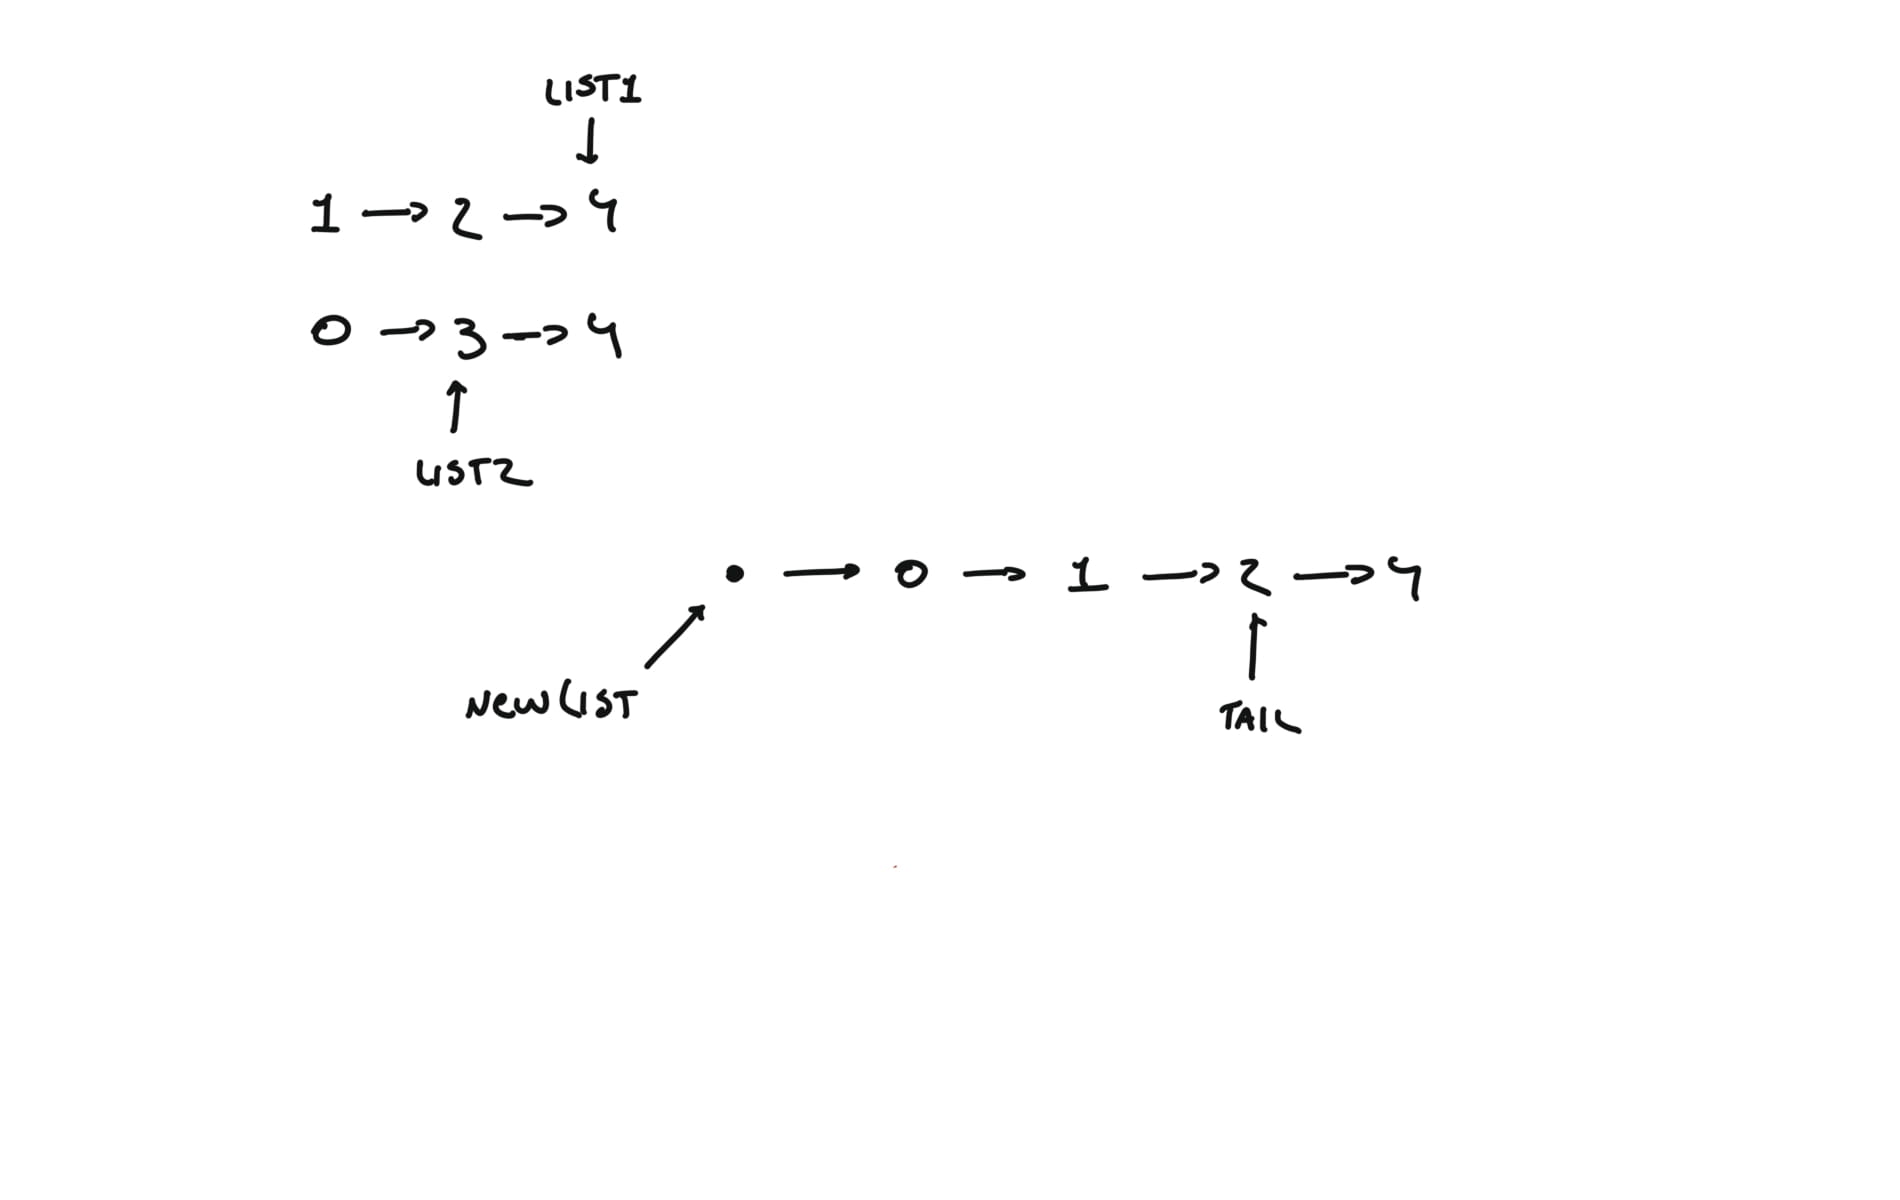 LIST1
↓
1 → 2 → 4
0 → 3 → 4
↑
LIST2
• → 0 → 1 → 2 → 4
NEWLIST
TAIL